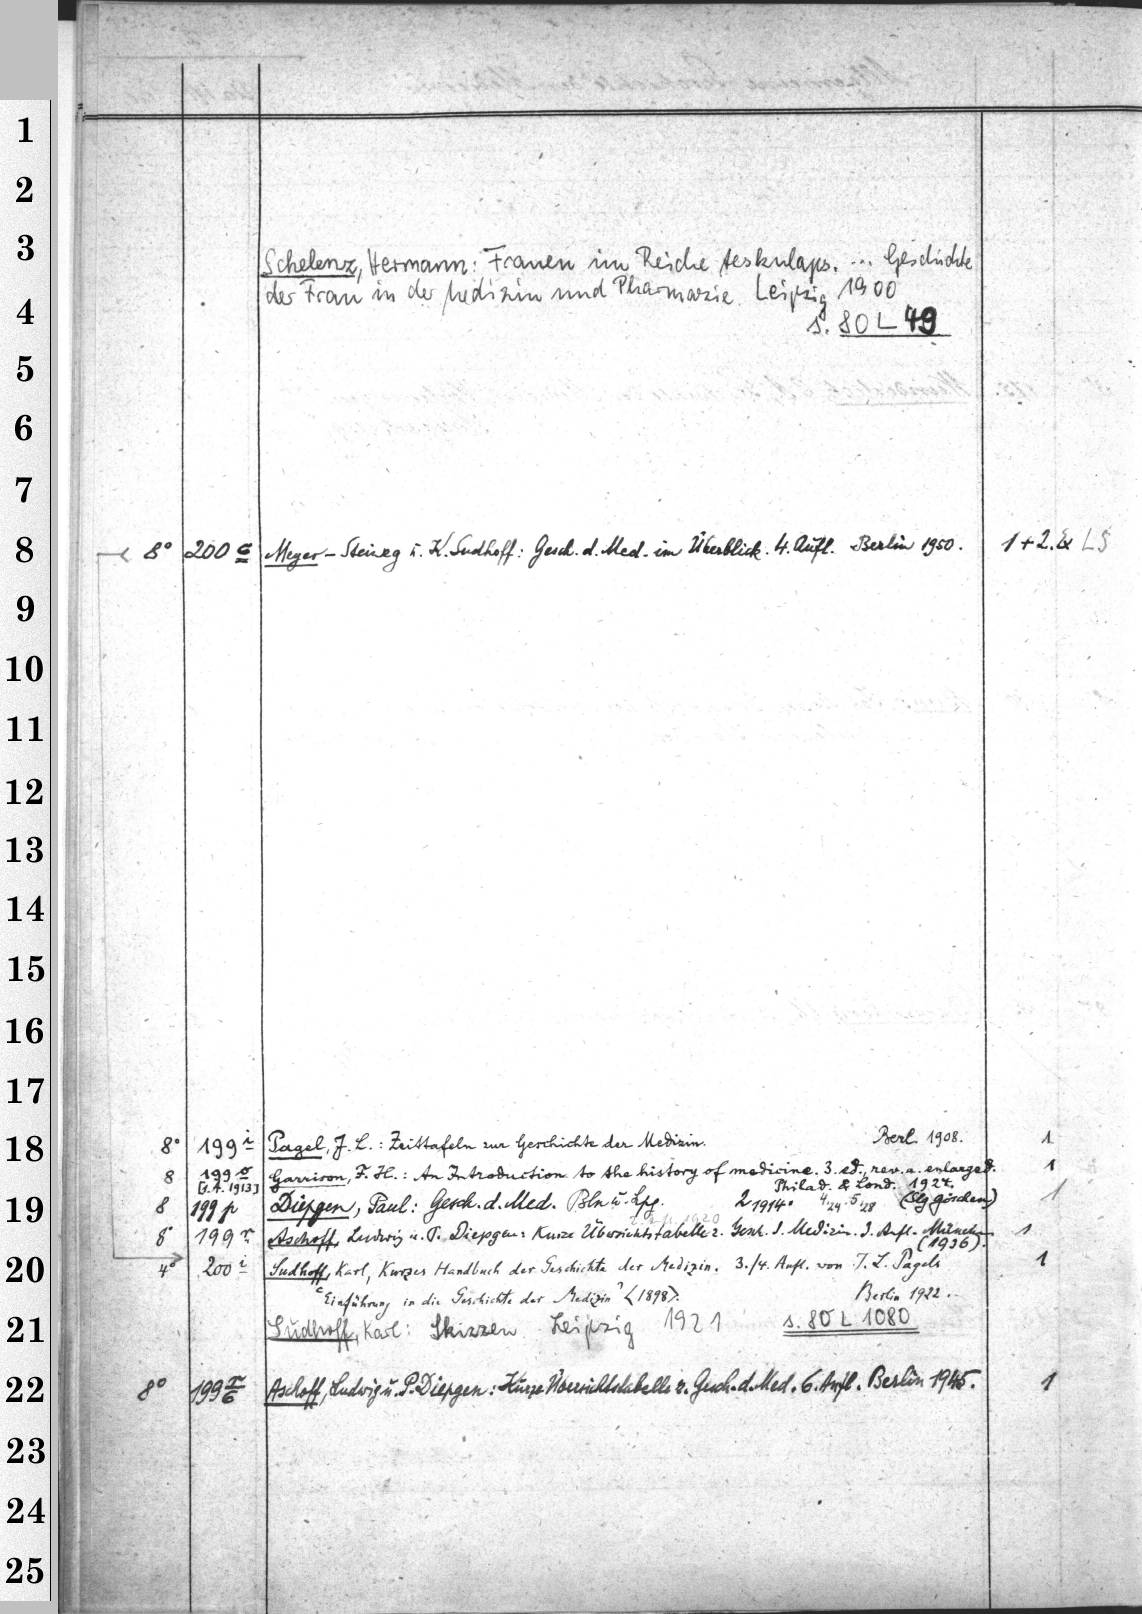 1
2
3
Schelenz, Hermann: Frauen im Reiche Aeskulaps. ... Geschichte
der Frau in der Medizin und Pharmazie. Leipzig 1900
4
s. 80 L 49
5
6
7
8
8° 200 c Meyer-Steineg u. K. Sudhoff: Gesch. d. Med. im Überblick. 4. Aufl. Berlin 1950. 1+2. LS
9
10
11
12
13
14
15
16
17
18
8° 199 i Pagel, J. L.: Zeittafeln zur Geschichte der Medizin. Berl. 1908. 1
8 199 o Garrison, F. H.: An Introduction to the history of medicine. 3. ed., rev. a. enlarged. 1
[1. A. 1913] Philad. & Lond. 1924.
19
8 199 p Diepgen, Paul: Gesch. d. Med. Bln u. Lpg. 2 1914. 4 24. 5 28 (Slg Göschen) 1
8° 199 r Aschoff, Ludwig u. P. Diepgen: Kurze Übersichtstabelle z. Gesch. d. Medizin. 3. Aufl. München 1
(1936).
20
4° 200 i Sudhoff, Karl, Kurzes Handbuch der Geschichte der Medizin. 3./4. Aufl. von J. L. Pagels 1
"Einführung in die Geschichte der Medizin" <1898>. Berlin 1922.
21
Sudhoff, Karl: Skizzen Leipzig 1921 s. 80 L 1080
22
8° 199 r/6 Aschoff, Ludwig u. P. Diepgen: Kurze Übersichtstabelle z. Gesch. d. Med. 6. Aufl. Berlin 1945. 1
23
24
25